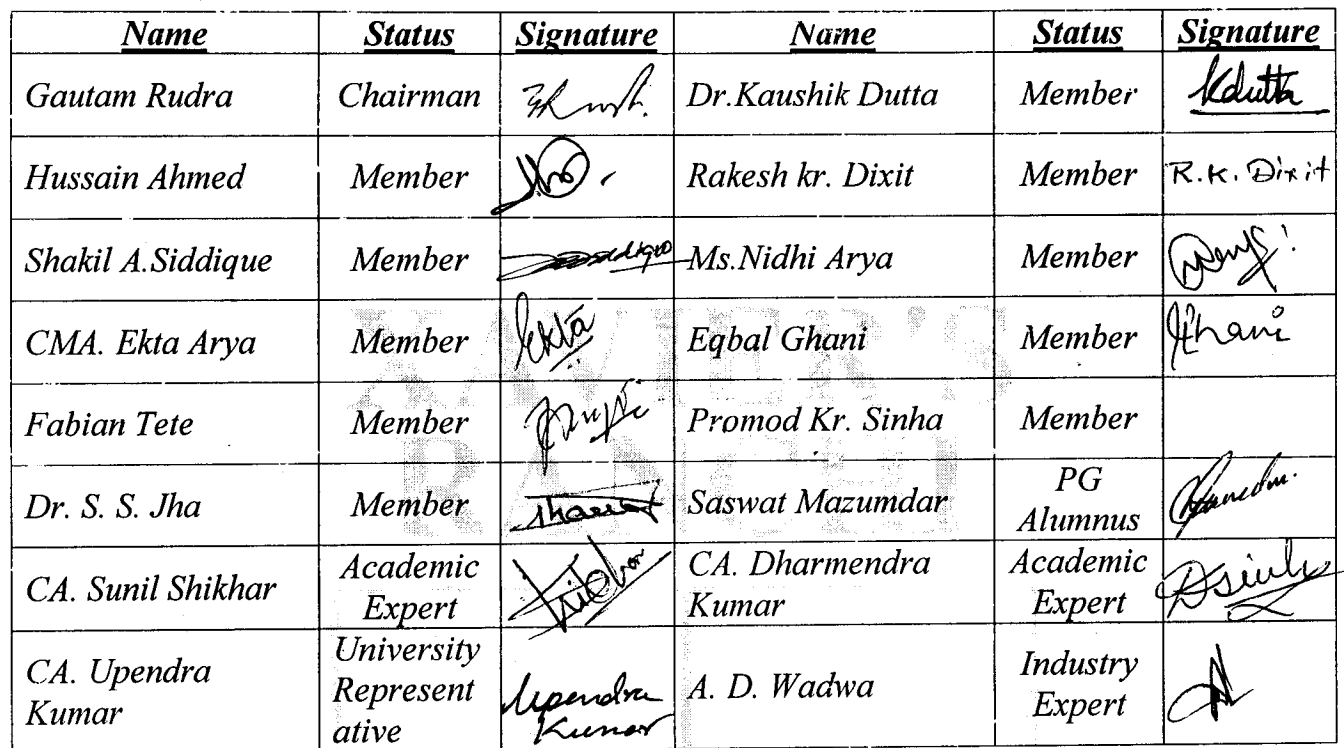 Name Status Signature Name Status Signature
Gautam Rudra Chairman Dr.Kaushik Dutta Member Kdutta
Hussain Ahmed Member Rakesh kr. Dixit Member R.K. Dixit
Shakil A.Siddique Member Ms.Nidhi Arya Member
CMA. Ekta Arya Member Ekta Eqbal Ghani Member Ghani
Fabian Tete Member Promod Kr. Sinha Member
Dr. S. S. Jha Member Saswat Mazumdar PG
Alumnus
CA. Sunil Shikhar Academic
Expert
CA. Dharmendra
Kumar
Academic
Expert
CA. Upendra
Kumar
University
Represent
ative
Upendra
Kumar
A. D. Wadwa Industry
Expert
XAVIER'S
RANCHI